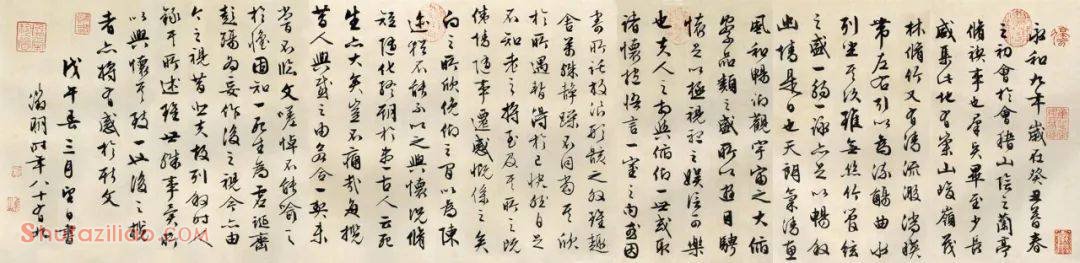 永和九年歲在癸丑暮春
之初會於會稽山陰之蘭亭
脩禊事也羣賢畢至少長
咸集此地有崇山峻嶺茂
林脩竹又有清流激湍映
帶左右引以為流觴曲水
列坐其次雖無絲竹管絃
之盛一觴一詠亦足以暢敘
幽情是日也天朗氣清惠
風和暢仰觀宇宙之大俯
察品類之盛所以遊目騁
懷足以極視聽之娛信可樂
也夫人之相與俯仰一世或取
諸懷抱悟言一室之內或因
寄所託放浪形骸之外雖趣
舍萬殊靜躁不同當其欣
於所遇暫得於己快然自足
不知老之將至及其所之既
倦情隨事遷感慨係之矣
向之所欣俛仰之間以為陳
迹猶不能不以之興懷況脩
短隨化終期於盡古人云死
生亦大矣豈不痛哉每攬
昔人興感之由若合一契未
嘗不臨文嗟悼不能喻之
於懷固知一死生為虛誕齊
彭殤為妄作後之視今亦由
今之視昔悲夫故列敘時人
錄其所述雖世殊事異所
以興懷其致一也後之攬
者亦將有感於斯文
戊午春三月望日書
徵明時年八十有九
Shufaziliao.com